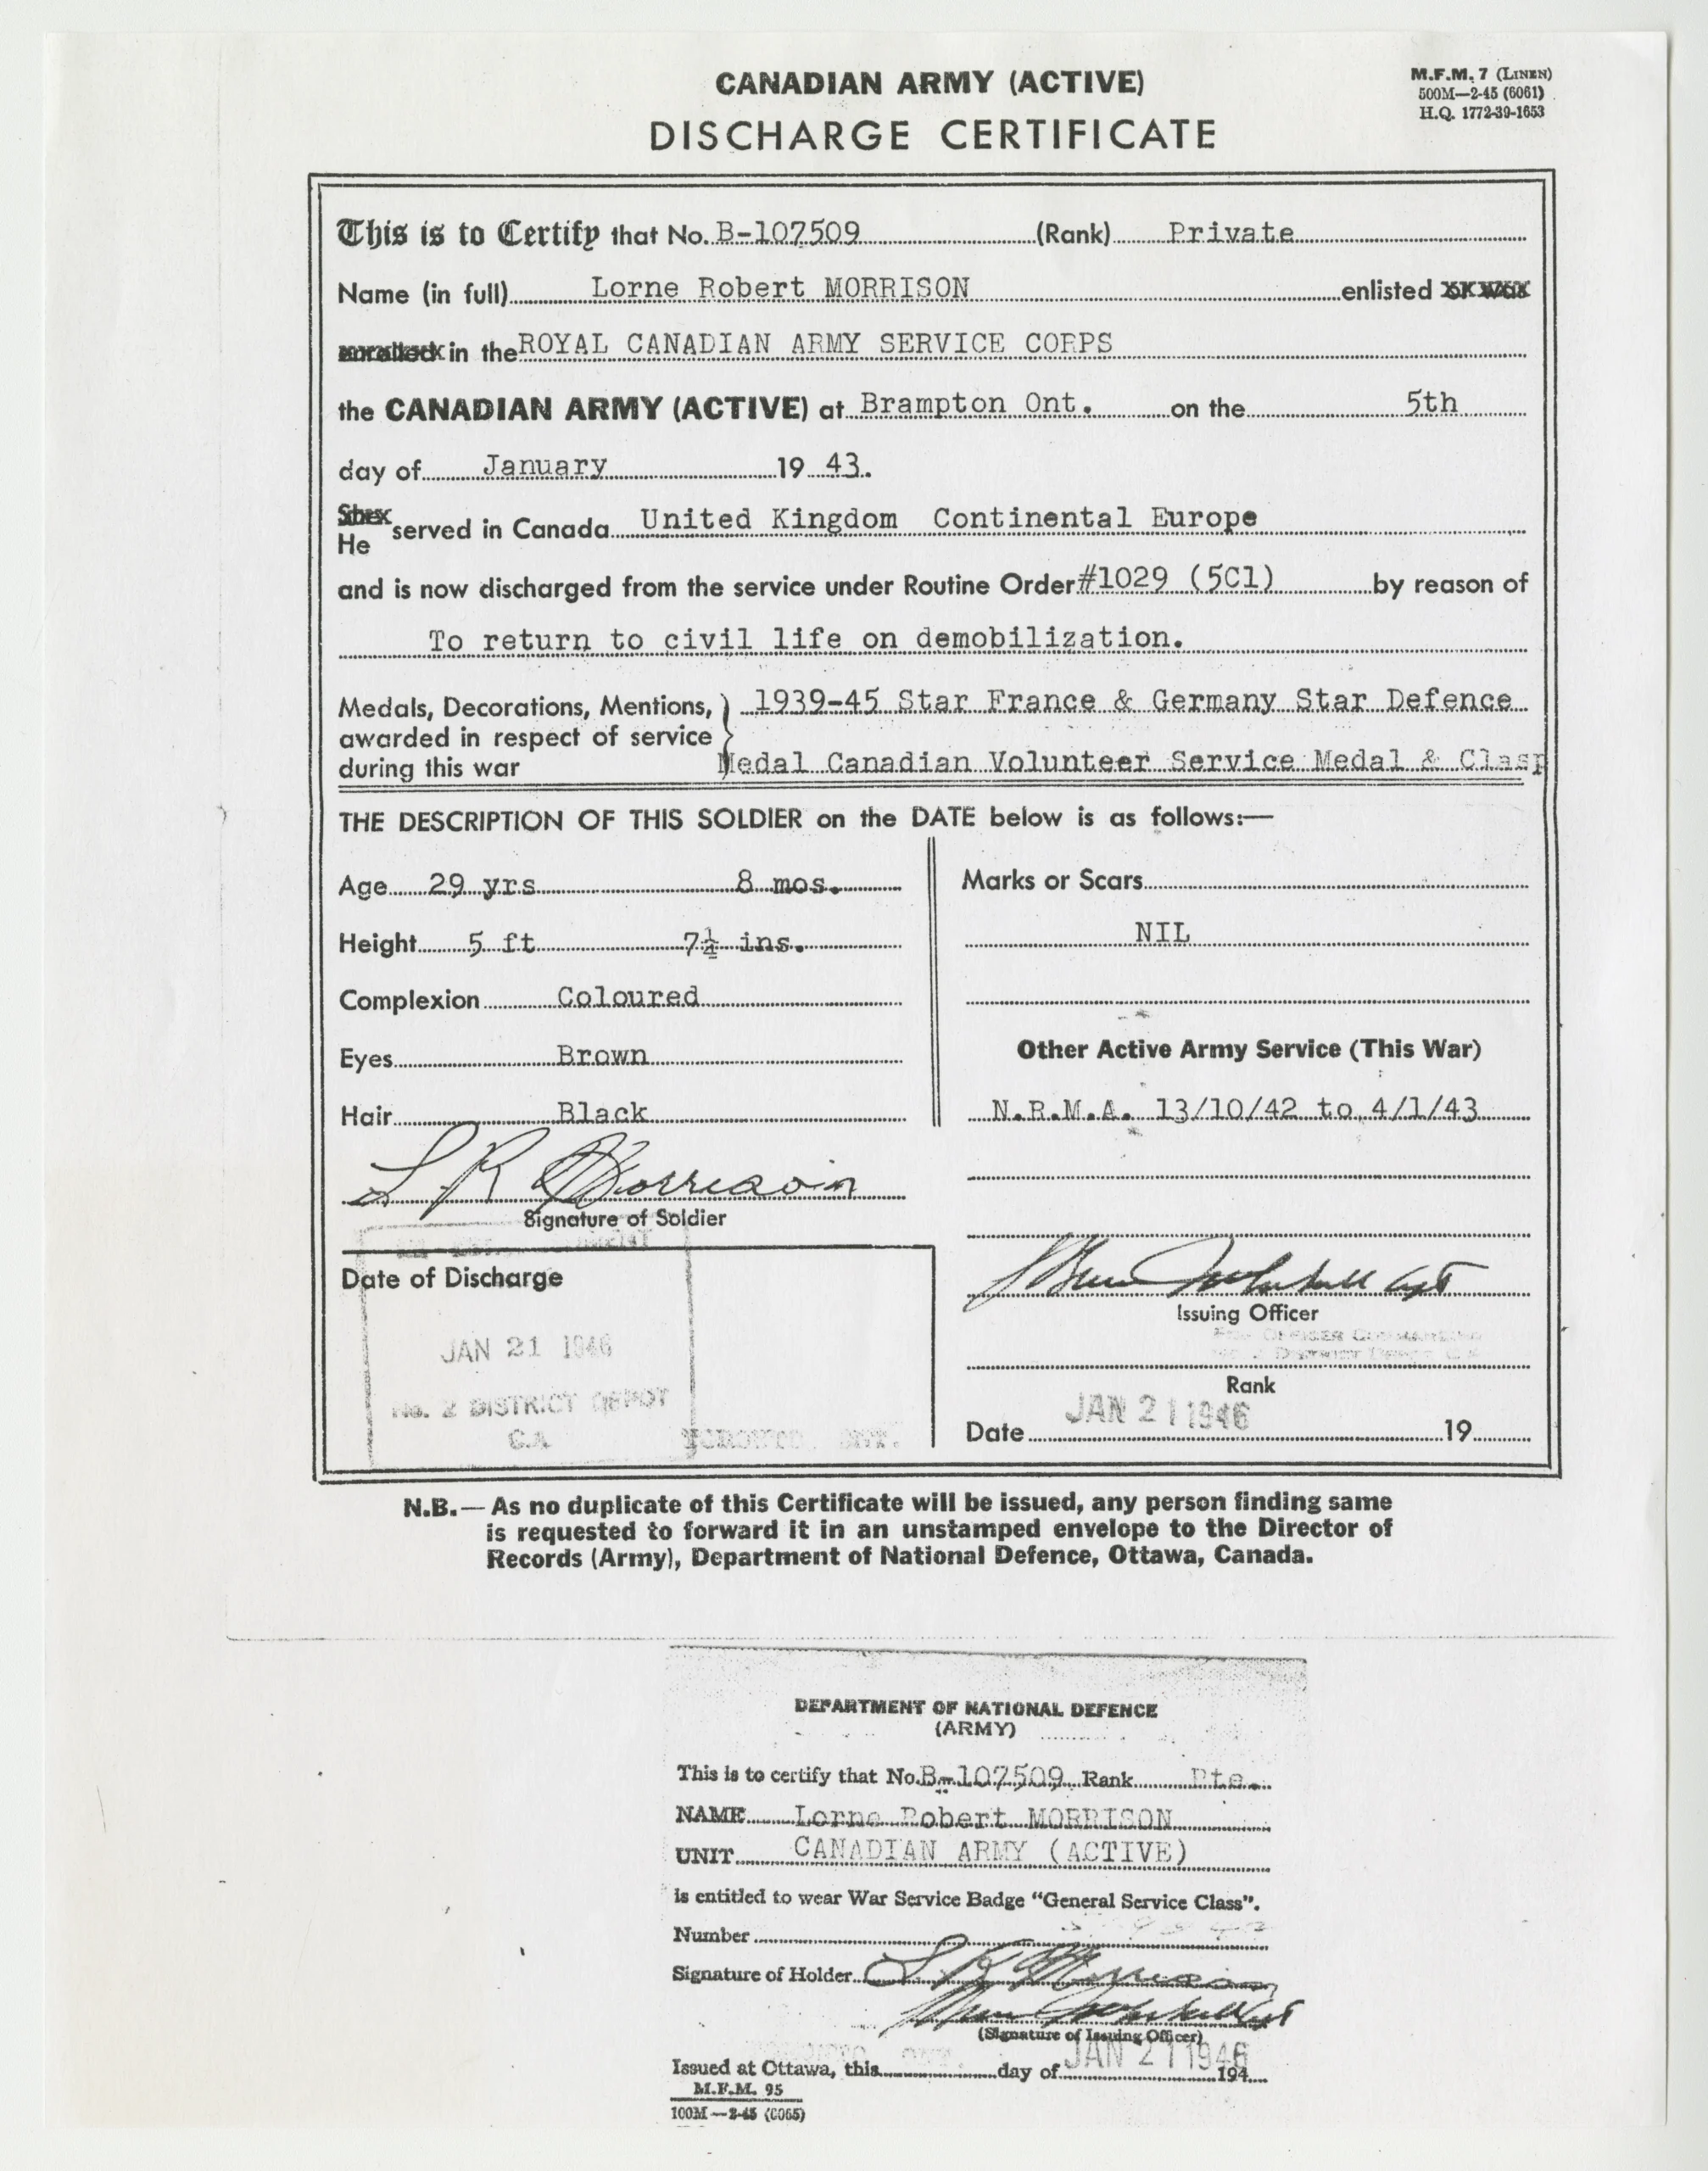 CANADIAN ARMY (ACTIVE)
DISCHARGE CERTIFICATE
M.F.M. 7 (LINEN)
500M—2-45 (6061)
H.Q. 1772-39-1653
This is to Certify that No. B-107509 (Rank) Private
Name (in full) Lorne Robert MORRISON enlisted
in the ROYAL CANADIAN ARMY SERVICE CORPS
the CANADIAN ARMY (ACTIVE) at Brampton Ont. on the 5th
day of January 19 43.
He served in Canada United Kingdom Continental Europe
and is now discharged from the service under Routine Order #1029 (5C1) by reason of
To return to civil life on demobilization.
Medals, Decorations, Mentions, awarded in respect of service during this war
1939-45 Star France & Germany Star Defence
Medal Canadian Volunteer Service Medal & Clasp
THE DESCRIPTION OF THIS SOLDIER on the DATE below is as follows:—
Age 29 yrs 8 mos.
Height 5 ft 7½ ins.
Complexion Coloured
Eyes Brown
Hair Black
L R Morrison
Signature of Soldier
Marks or Scars
NIL
Other Active Army Service (This War)
N.R.M.A. 13/10/42 to 4/1/43
Date of Discharge
JAN 21 1946
No. 2 DISTRICT DEPOT
C.A. TORONTO, ONT.
Capt
Issuing Officer
FOR OFFICER COMMANDING
No. 2 DISTRICT DEPOT C.A.
Rank
JAN 21 1946
Date 19
N.B.—As no duplicate of this Certificate will be issued, any person finding same
is requested to forward it in an unstamped envelope to the Director of
Records (Army), Department of National Defence, Ottawa, Canada.
DEPARTMENT OF NATIONAL DEFENCE
(ARMY)
This is to certify that No. B-107509 Rank Pte.
NAME Lorne Robert MORRISON
UNIT CANADIAN ARMY (ACTIVE)
is entitled to wear War Service Badge "General Service Class".
Number
Signature of Holder L R Morrison
(Signature of Issuing Officer)
TORONTO ONT. JAN 21 1946
Issued at Ottawa, this day of 194
M.F.M. 95
100M—2-45 (6065)